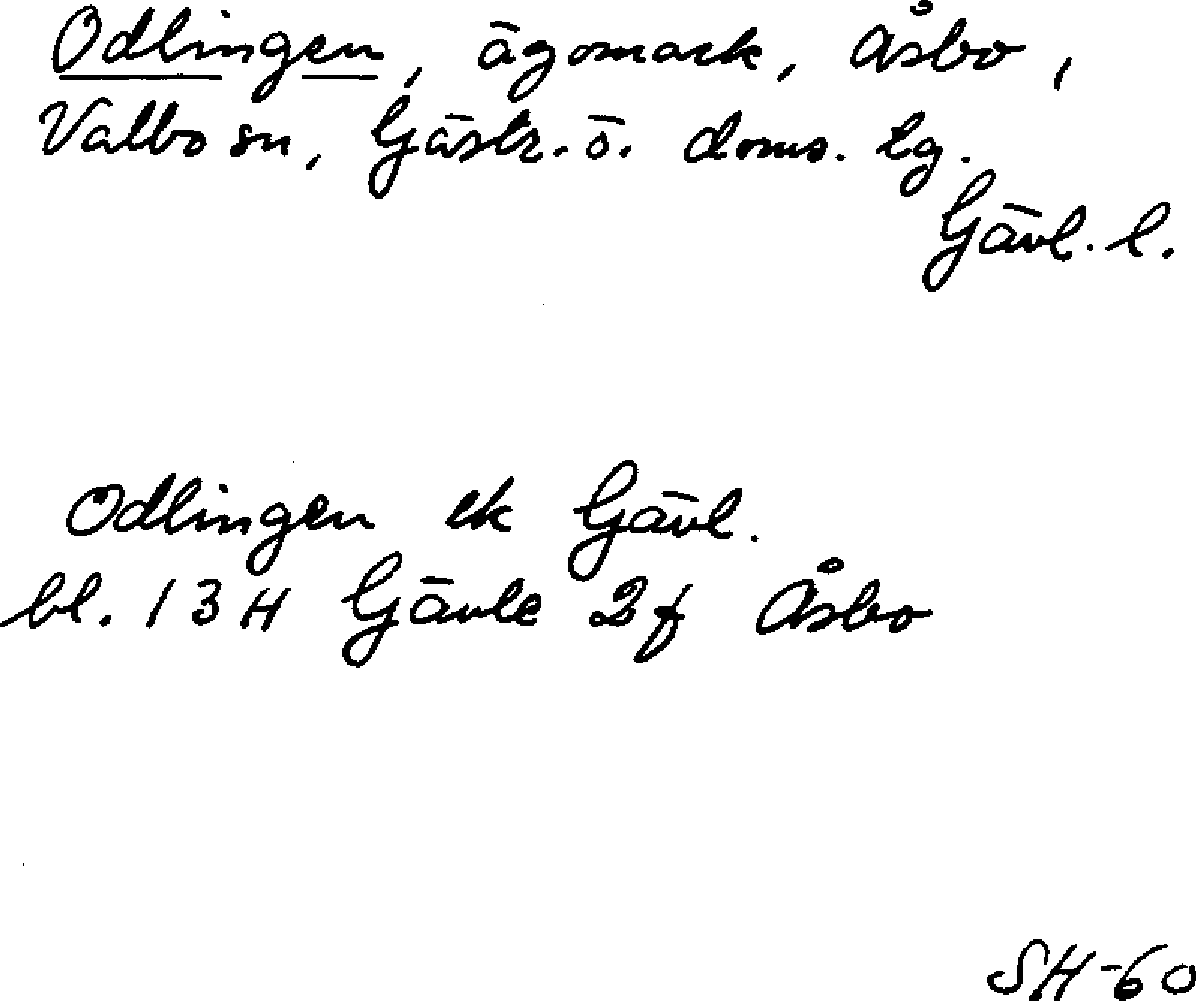 Odlingen, ägomark, Åsbo,
Valbo sn, Gästr. ö. doms. lg.
Gävl. l.
Odlingen ek Gävl.
bl. 13H Gävle 2f Åsbo
SH-60